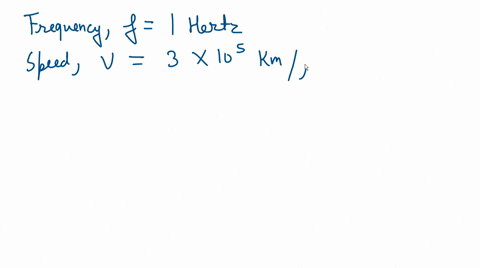 Frequency, f = 1 Hertz
Speed, v = 3 × 10⁵ Km/